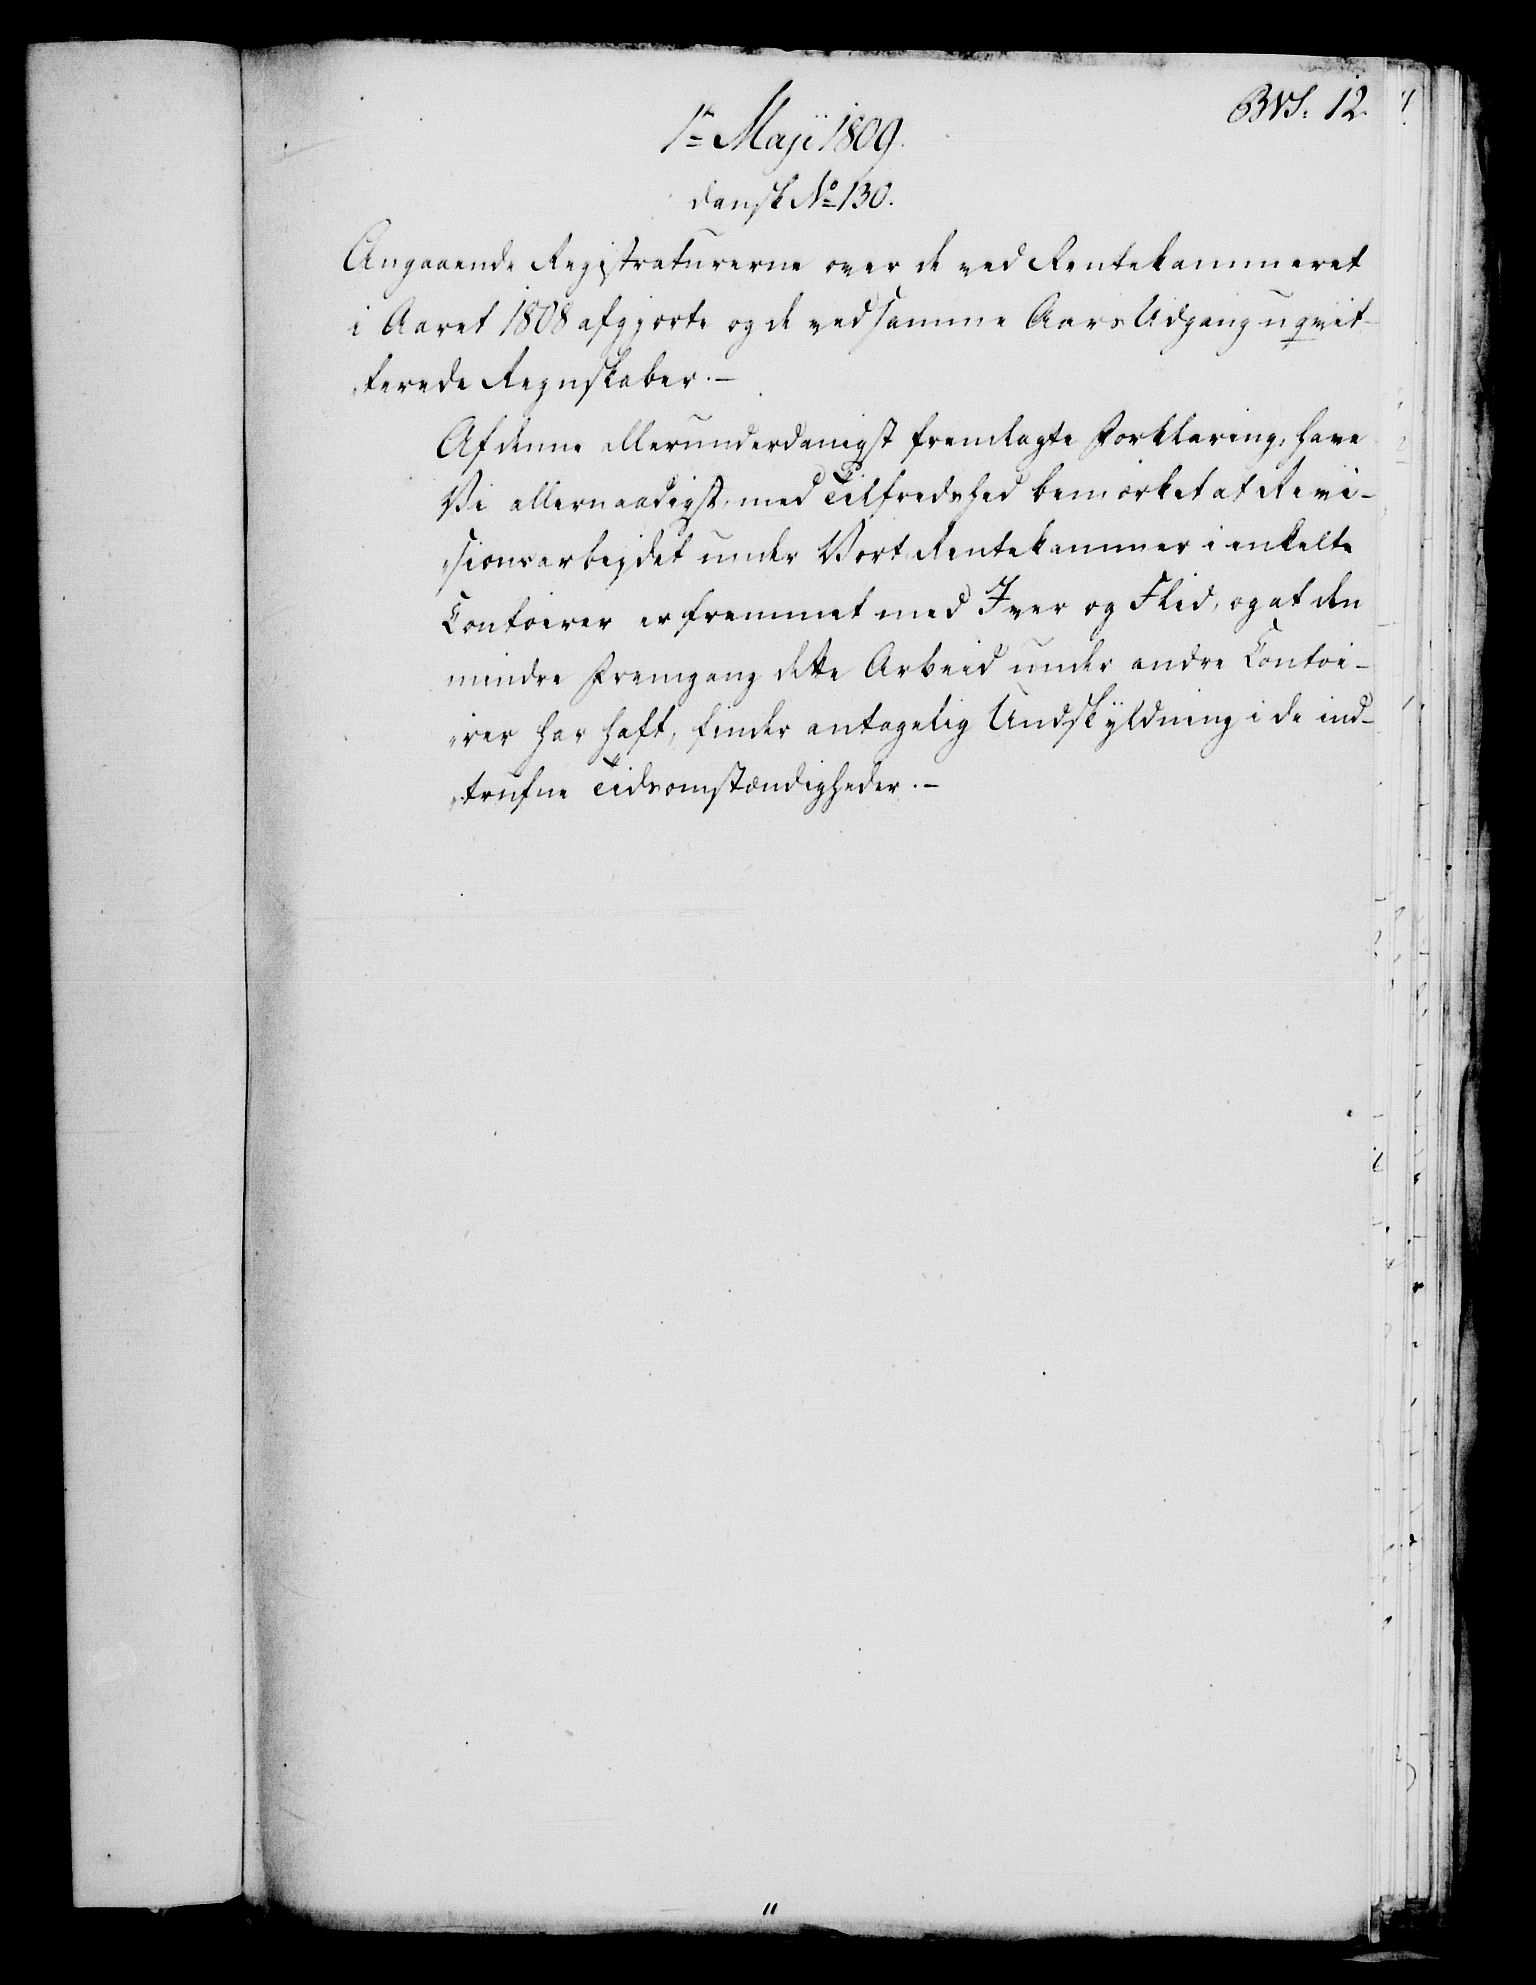 12.
1te Maji 1809.
dansk No 130.
Angaaende Registraturerne over de ved Rentekammeret
i Aaret 1808 afgjorte og de ved samme Aars Udgang uqvit-
terede Regnskaber.-
Af denne allerunderdanigst fremlagte Forklaring, have
Vi allernaadigst, med Tilfredshed bemærket at Revi-
sionsarbejdet under Vort Rentekammer i enkelte
Contoirer er fremmet med Iver og Flid, og at den
mindre Fremgang dette Arbeid under andre Contoi-
rer har haft, finder antagelig Undskyldning i de ind-
trufne Tidsomstændigheder.-